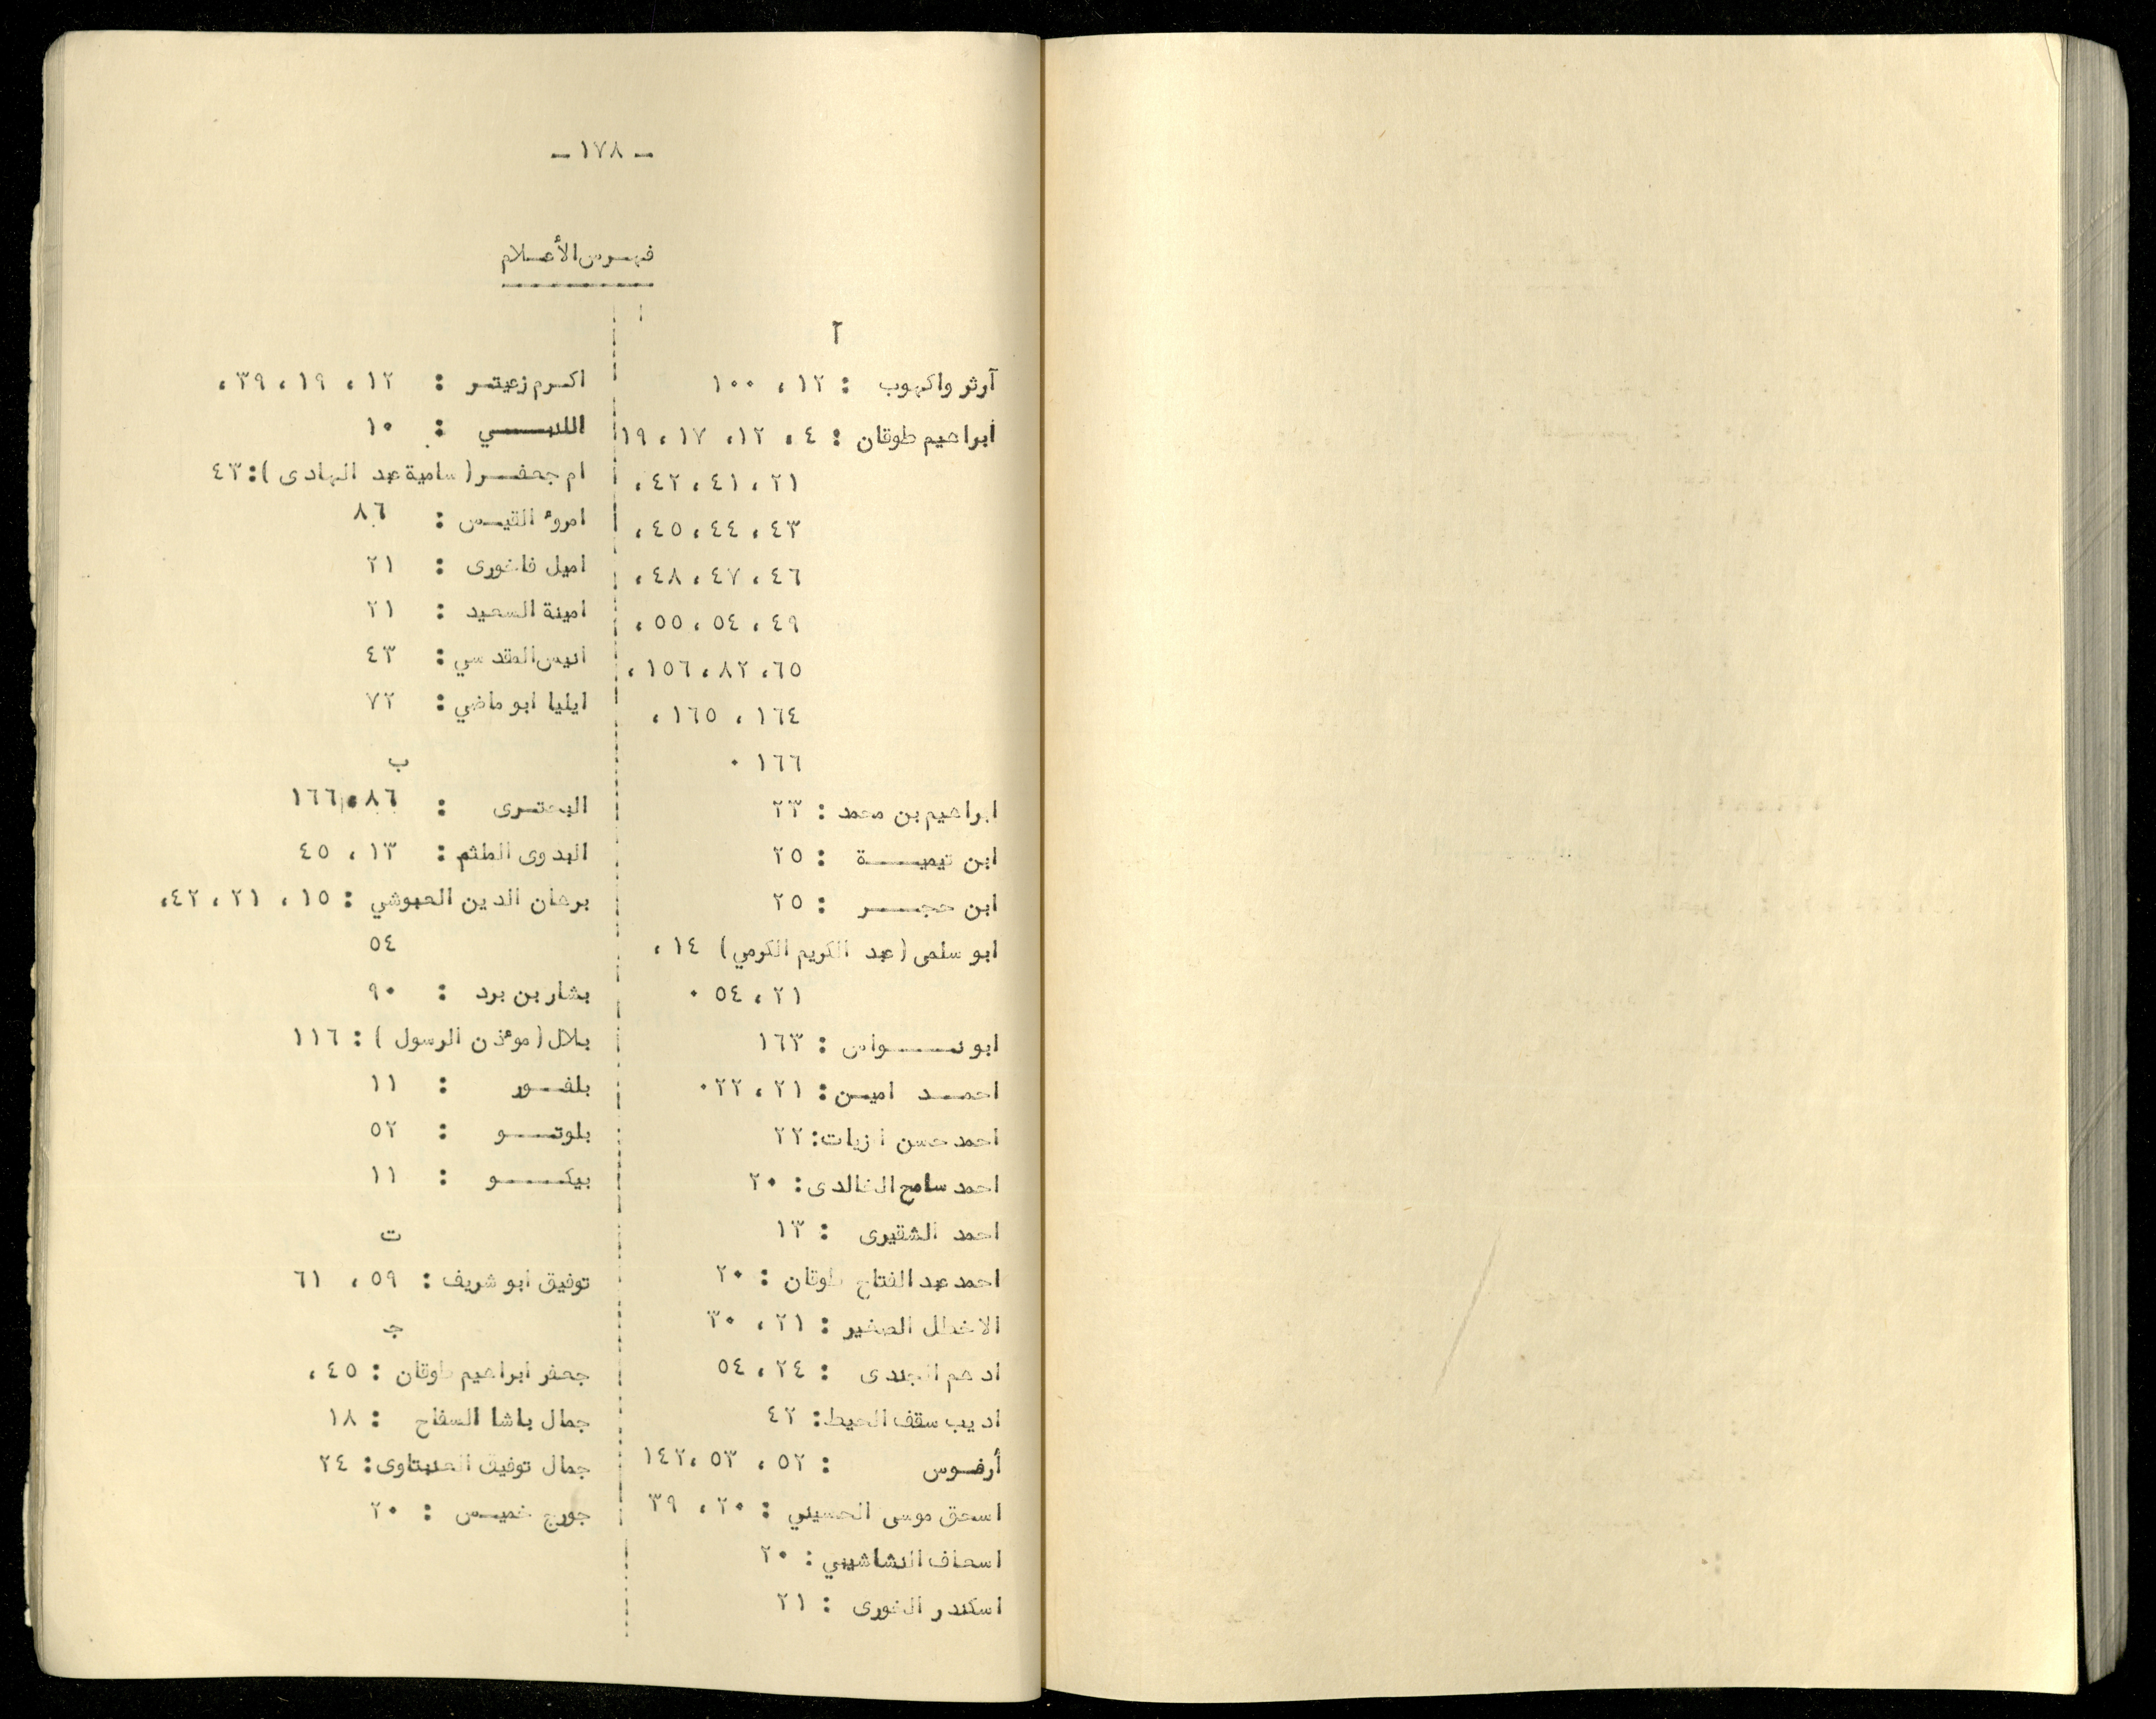 - ١٧٨ -
فهرس الأعلام
آ
آرثر واكهوب : ١٢ ، ١٠٠
ابراهيم طوقان : ٤ ، ١٢ ، ١٧ ، ١٩
٢١ ، ٤١ ، ٤٢ ،
٤٣ ، ٤٤ ، ٤٥ ،
٤٦ ، ٤٧ ، ٤٨ ،
٤٩ ، ٥٤ ، ٥٥ ،
٦٥ ، ٨٢ ، ١٥٦ ،
١٦٤ ، ١٦٥ ،
١٦٦ ٠
ابراهيم بن محمد : ٢٣
ابن تيمية : ٢٥
ابن حجر : ٢٥
ابو سلمى ( عبد الكريم الكرمي ) ١٤ ،
٢١ ، ٥٤ ٠
ابو نواس : ١٦٣
احمد امين : ٢١ ، ٢٢ ٠
احمد حسن الزيات : ٢٢
احمد سامح الخالدى : ٢٠
احمد الشقيرى : ١٣
احمد عبد الفتاح طوقان : ٢٠
الاخطل الصغير : ٢١ ، ٣٠
ادهم الجندى : ٢٤ ، ٥٤
اديب سقف الحيط : ٤٢
أرفوس : ٥٢ ، ٥٣ ، ١٤٢
اسحق موسى الحسيني : ٢٠ ، ٣٩
اسعاف النشاشيبي : ٢٠
اسكندر الخورى : ٢١
اكرم زعيتر : ١٢ ، ١٩ ، ٣٩ ،
اللنبي : ١٠
ام جعفر ( سامية عبد الهادى ) : ٤٣
امروء القيس : ٨٦
اميل فاخورى : ٢١
امينة السعيد : ٢١
انيس المقدسي : ٤٣
ايليا ابو ماضي : ٧٢
ب
البحترى : ٨٦ ، ١٦٦
البدوى الملثم : ١٣ ، ٤٥
برهان الدين العبوشي : ١٥ ، ٢١ ، ٤٢ ،
٥٤
بشار بن برد : ٩٠
بلال ( موءذن الرسول ) : ١١٦
بلفور : ١١
بلوتو : ٥٢
بيكو : ١١
ت
توفيق ابو شريف : ٥٩ ، ٦١
ج
جعفر ابراهيم طوقان : ٤٥ ،
جمال باشا السفاح : ١٨
جمال توفيق : ٢٤
جورج خميس : ٢٠